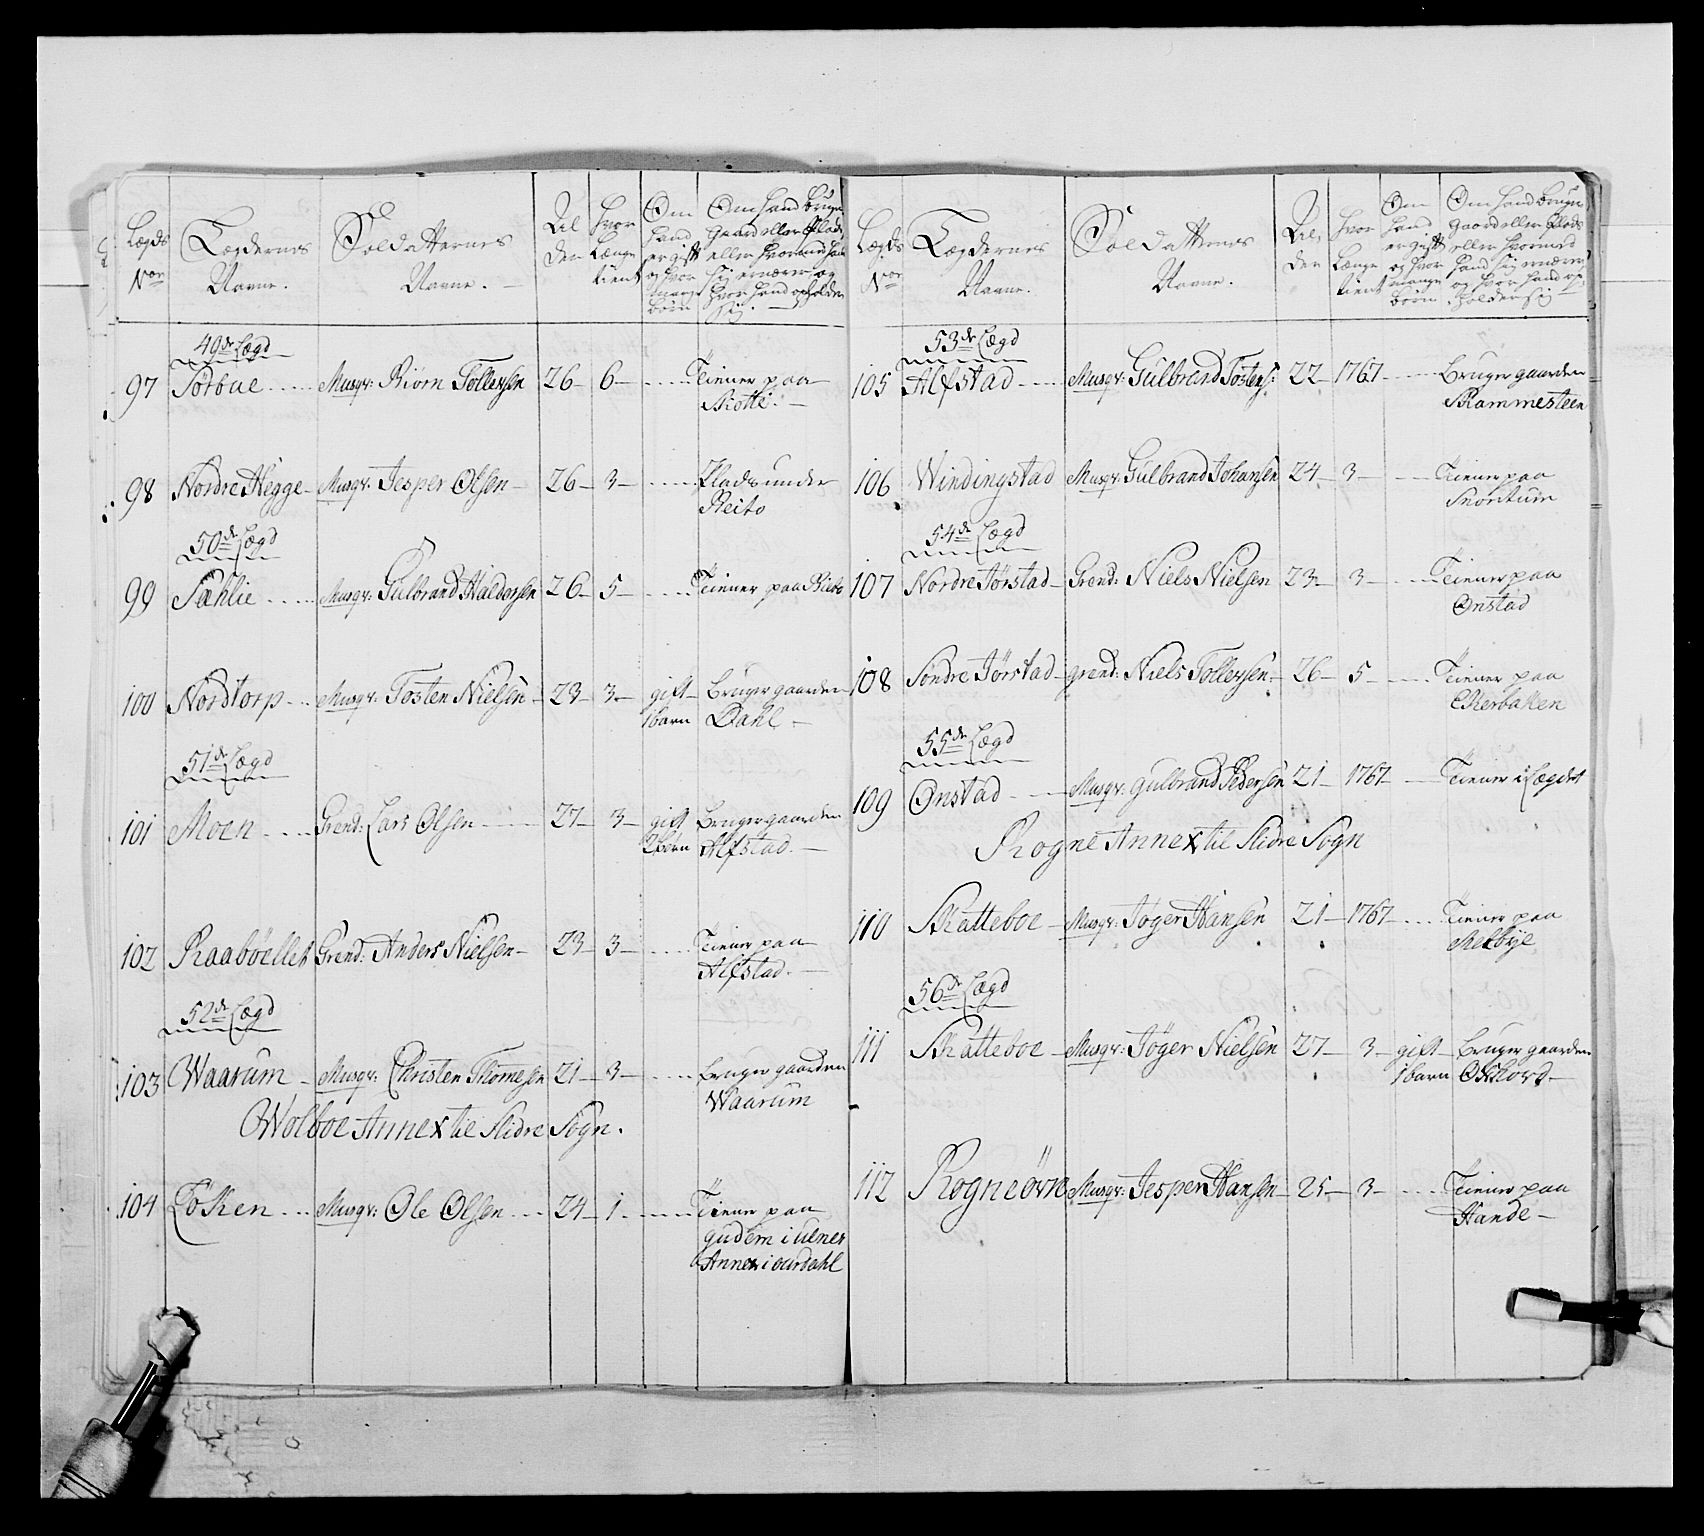 Lægds Nor
Lægdernes Navne.
Soldatternes Navne.
Al der
hvor længe tient
Om hand er gift og hvor mange børn
Om hand bruger gaard eller Plads eller hvormed hand sig ernærer og hvor hand opholder sig.
49de Lægd
97 Sørbue Musqr: Biørn Tollefsen 26 6 Tiener paa
Skotte.
98 Nordre Hegge Musqr: Jesper Olsen 26 3 Plads under
Reito
50de Lægd
99 Sæhlie Musqr: Gulbrand Haldorsen 26 5 Tiener paa
100 Nordtorp Musqr: Tosten Nielsen 23 3 gift Bruger gaarden
1 barn Dahl
51de Lægd
101 Moen Grend: Lars Olsen 27 3 gift Bruger gaarden
2 børn Alfstad.
102 Raabøellet Grend: Anders Nielsen 23 3 Tiener paa
Alfstad.
52de Lægd
103 Waarum Musqr: Christen Thomesen 21 3 bruger gaarden
Waarum
Wolboe Annex til Slidre Sogn.
104 Løken Musqr: Ole Olsen 24 1 Tiener paa
gudem i ulnes
Annex i ourdahl
Lægds Nor
Lægdernes Navne.
Soldatternes Navne.
Al der
hvor længe tient
Om hand er gift og hvor mange børn
Om hand bruger gaard eller Plads eller hvormed hand sig ernærer og hvor hand opholder sig
53de Lægd
105 Alfstad Musqr: Gulbrand Tostens: 22 1767 Bruger gaarden
Rammesteen
106 Windingstad Musqr: Gulbrand Johansen 24 3 Tiener paa
Snortum
54de Lægd
107 Nordre Jørstad Grend: Niels Nielsen 23 3 Tiener paa
Onstad
108 Søndre Jørstad grend: Niels Tollefsen 26 5 Tiener paa
Ekerbaken
55de Lægd
109 Onstad Musqr: gulbrand Pedersen 21 1767 Tiener i Lægdet
Rogne Annex til Slidre Sogn
110 Skatteboe Musqr: Jøger Hansen 21 1767 Tiener paa
Melbye
56de Lægd
111 Skatteboe Musqr: Jøger Nielsen 27 3 gift Bruger gaarden
1 barn Okshovd
112 Rogneøvre Musqr: Jesper Hansen 25 3 Tiener paa
Hande